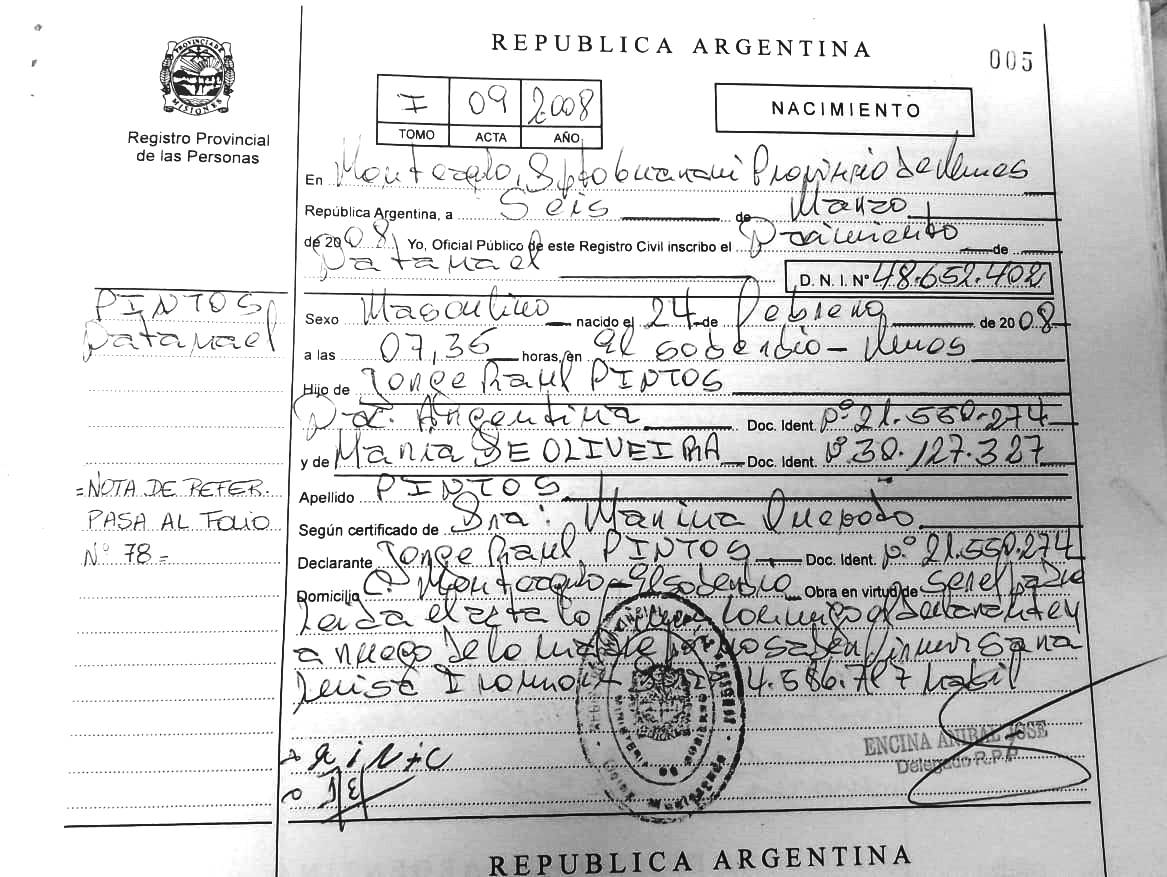 REPUBLICA ARGENTINA
005
PROVINCIA DE MISIONES
Registro Provincial
de las Personas
I 09 2008
TOMO ACTA AÑO
NACIMIENTO
En Montecarlo, Provincia de
República Argentina, a Seis de Marzo
de 2008, Yo, Oficial Público de este Registro Civil inscribo el Nacimiento de
Natanael
D. N. I. Nº 48.652.402
PINTOS
Natanael
Sexo Masculino nacido el 24 de Febrero de 2008
a las 07,36 horas, en El Soberbio -
Hijo de Jorge Raul PINTOS
Argentina Doc. Ident. Nº 21.550.274
y de Maria DE OLIVEIRA Doc. Ident. Nº 30.127.327
Apellido PINTOS
=NOTA DE REFER.
PASA AL FOLIO
Nº 78=
Según certificado de Sra: Marina
Declarante Jorge Raul PINTOS Doc. Ident. Nº 21.550.274
Domicilio El Soberbio Obra en virtud de Ser el Padre
Leida el acta la
a ruego de la madre por no saber
Luisa 4.586.717 habil
ENCINA ANIBAL JOSE
Delegado R.P.P
REPUBLICA ARGENTINA